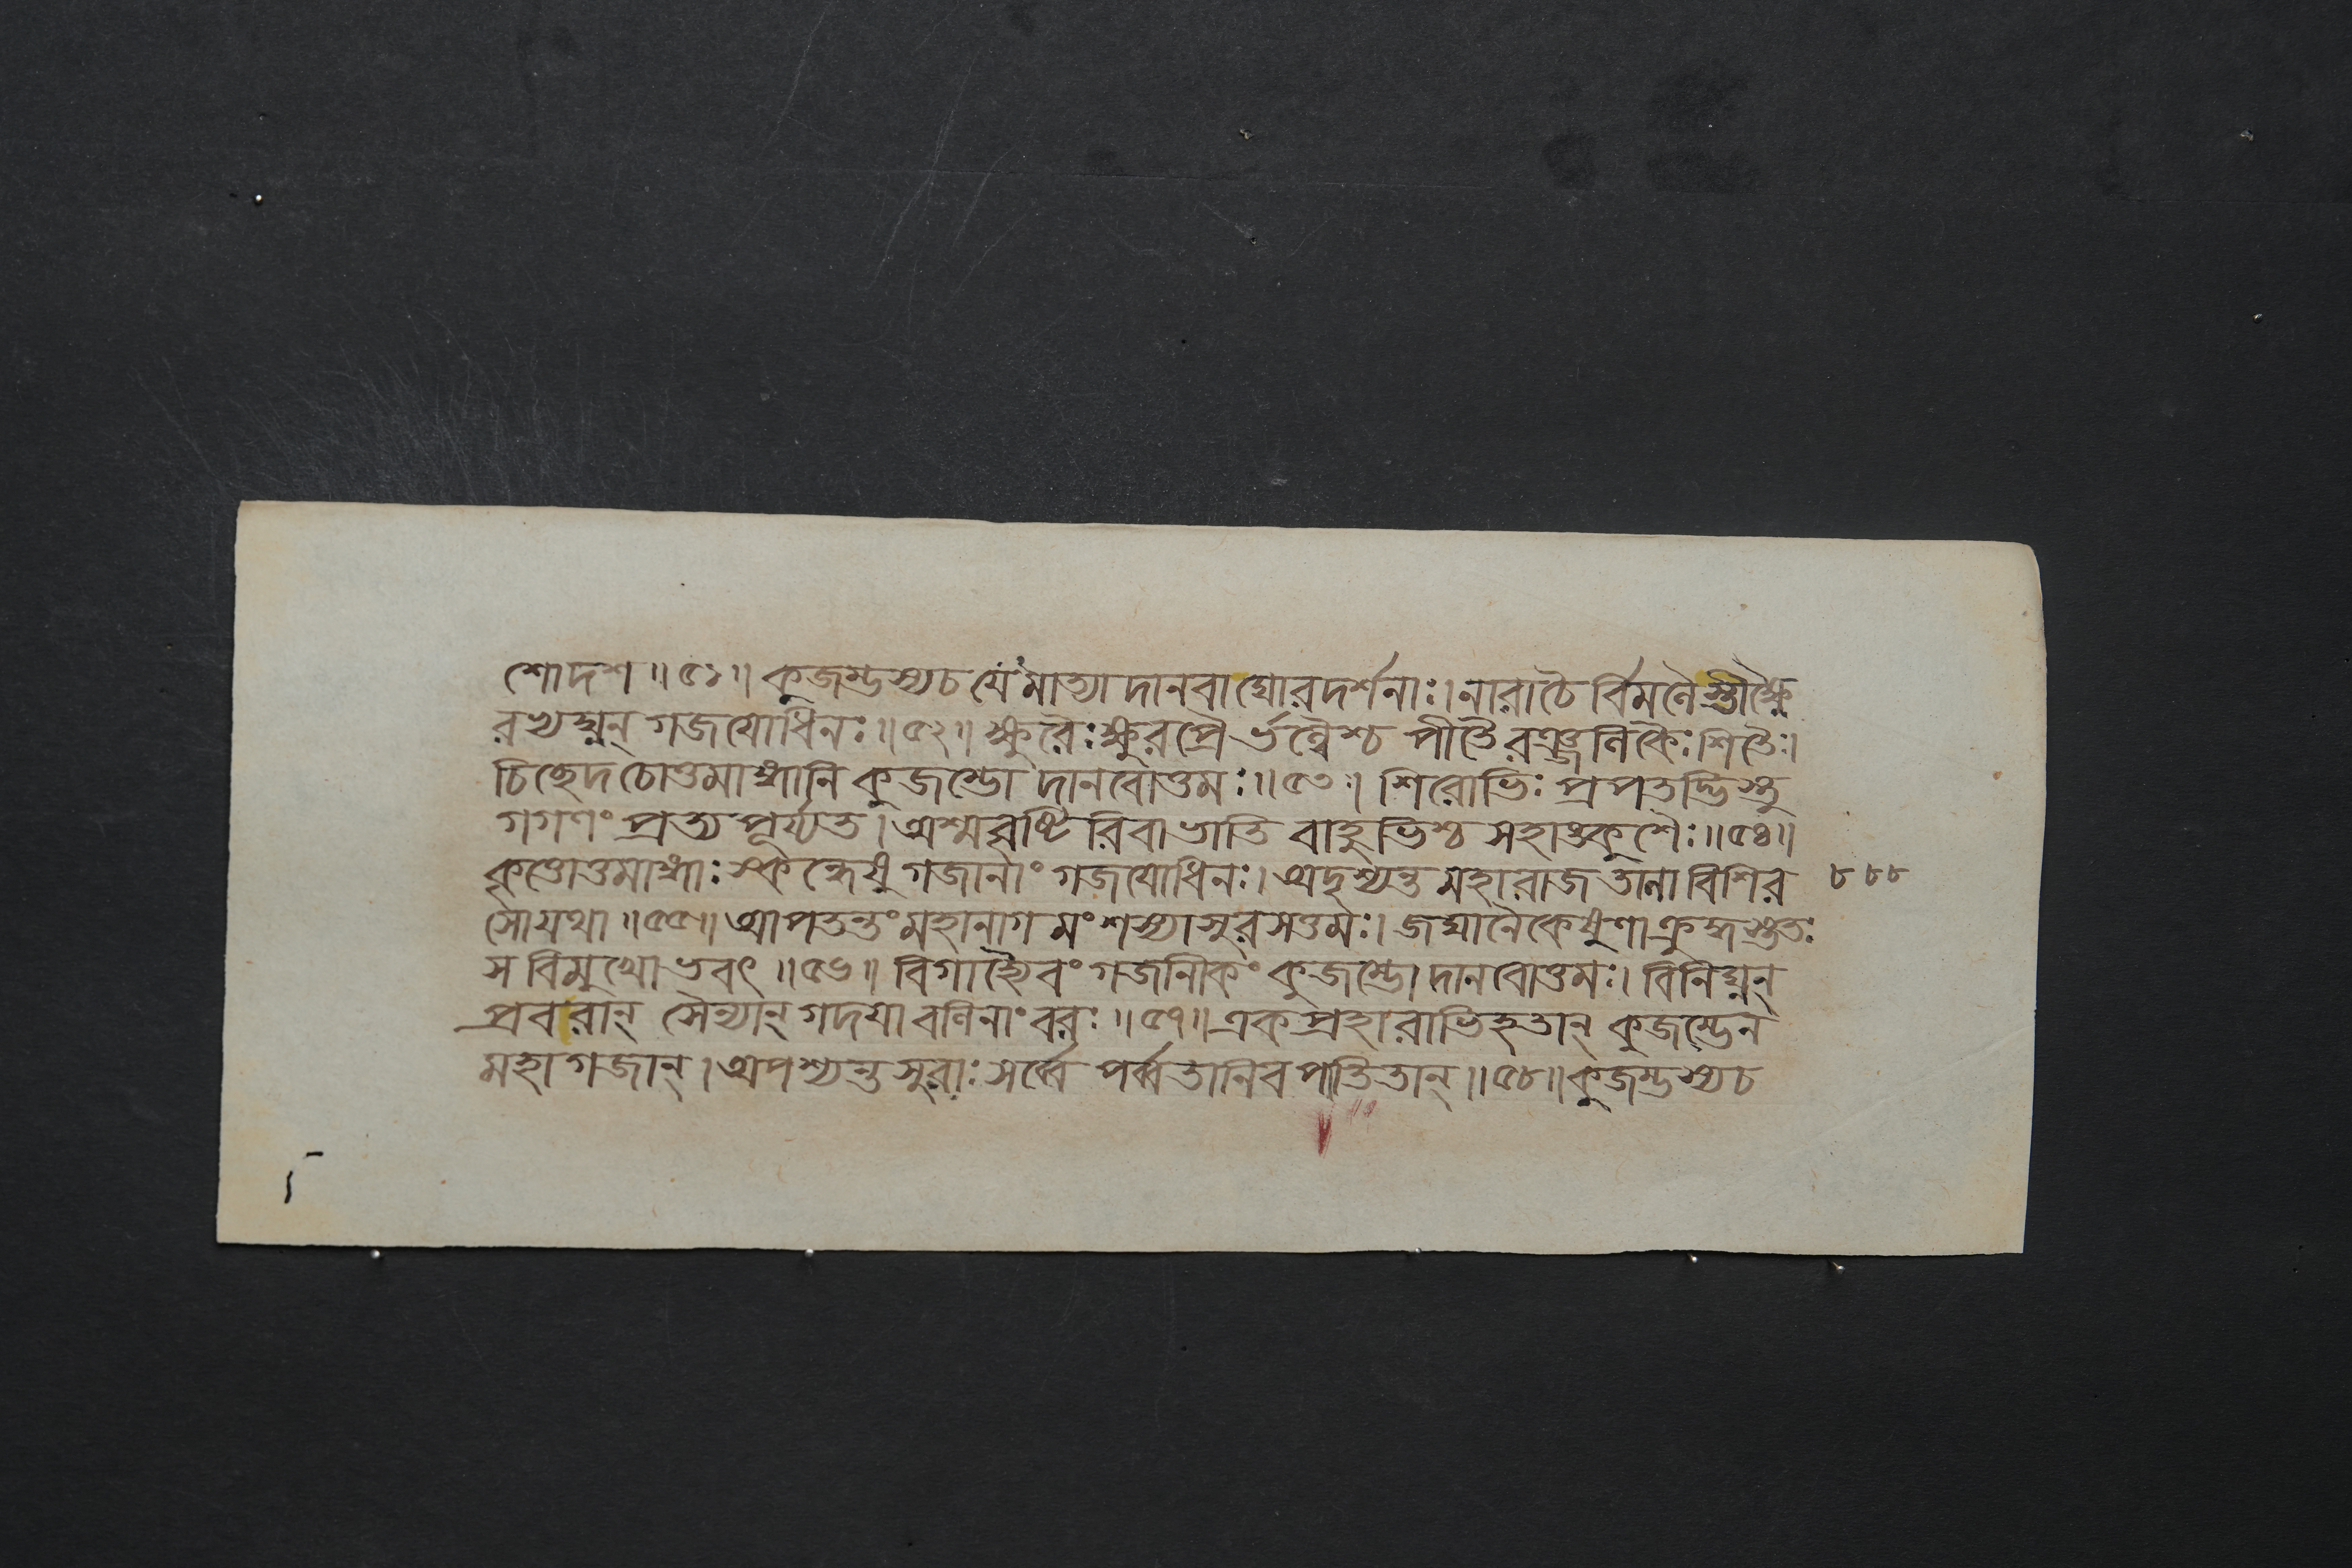 শো দশ ॥ ৫১ ॥ কুজম্ভস্য চ যেমাত্যা দানবা ঘোরদর্শনাঃ। নারাচৈ র্বিমলৈ স্তীক্ষ্ণৈ
রভ্যঘ্নন্ গজযোধিনঃ ॥ ৫২ ॥ ক্ষুরৈঃ ক্ষুরপ্রৈ র্ভল্লৈশ্চ পীতৈ রঞ্জলিকৈঃ শিতৈঃ।
চিচ্ছেদ চোত্তমাঙ্গানি কুজম্ভো দানবোত্তমঃ ॥ ৫৩ । শিরোভিঃ প্রপতদ্ভিস্তু
গগণং প্রত্য পূর্য্যত। অশ্মবৃষ্টি রিবা ভাতি বাহুভিশ্চ সহাঙ্কুশৈঃ ॥ ৫৪ ॥
কৃত্তোত্তমাঙ্গাঃ স্কন্ধেষু গজানাং গজযোধিনঃ। অদৃশ্যন্ত মহারাজ তালা বিশির
সো যথা ॥ ৫৫ ॥ আপতন্তং মহানাগ মংশস্যাসুর সত্তমঃ। জঘানৈকেষুণা ক্রুদ্ধ স্তুতঃ
স বিমুখো ভবৎ ॥ ৫৬ ॥ বিগাহ্যৈবং গজনিীকং কুজম্ভো দানবোত্তমঃ। বিনিঘ্নন্
প্রবরান্ সৈন্যান্ গদয়া বলিনাং বরঃ ॥ ৫৭ ॥ এক প্রহারাভিহতান্ কুজম্ভেন
মহা গজান্। অপশ্যন্ত সুরাঃ সর্ব্বে পর্ব্বতানিব পাতিতান্ ॥ ৫৮ ॥ কুজম্ভস্য চ
৮৮৮